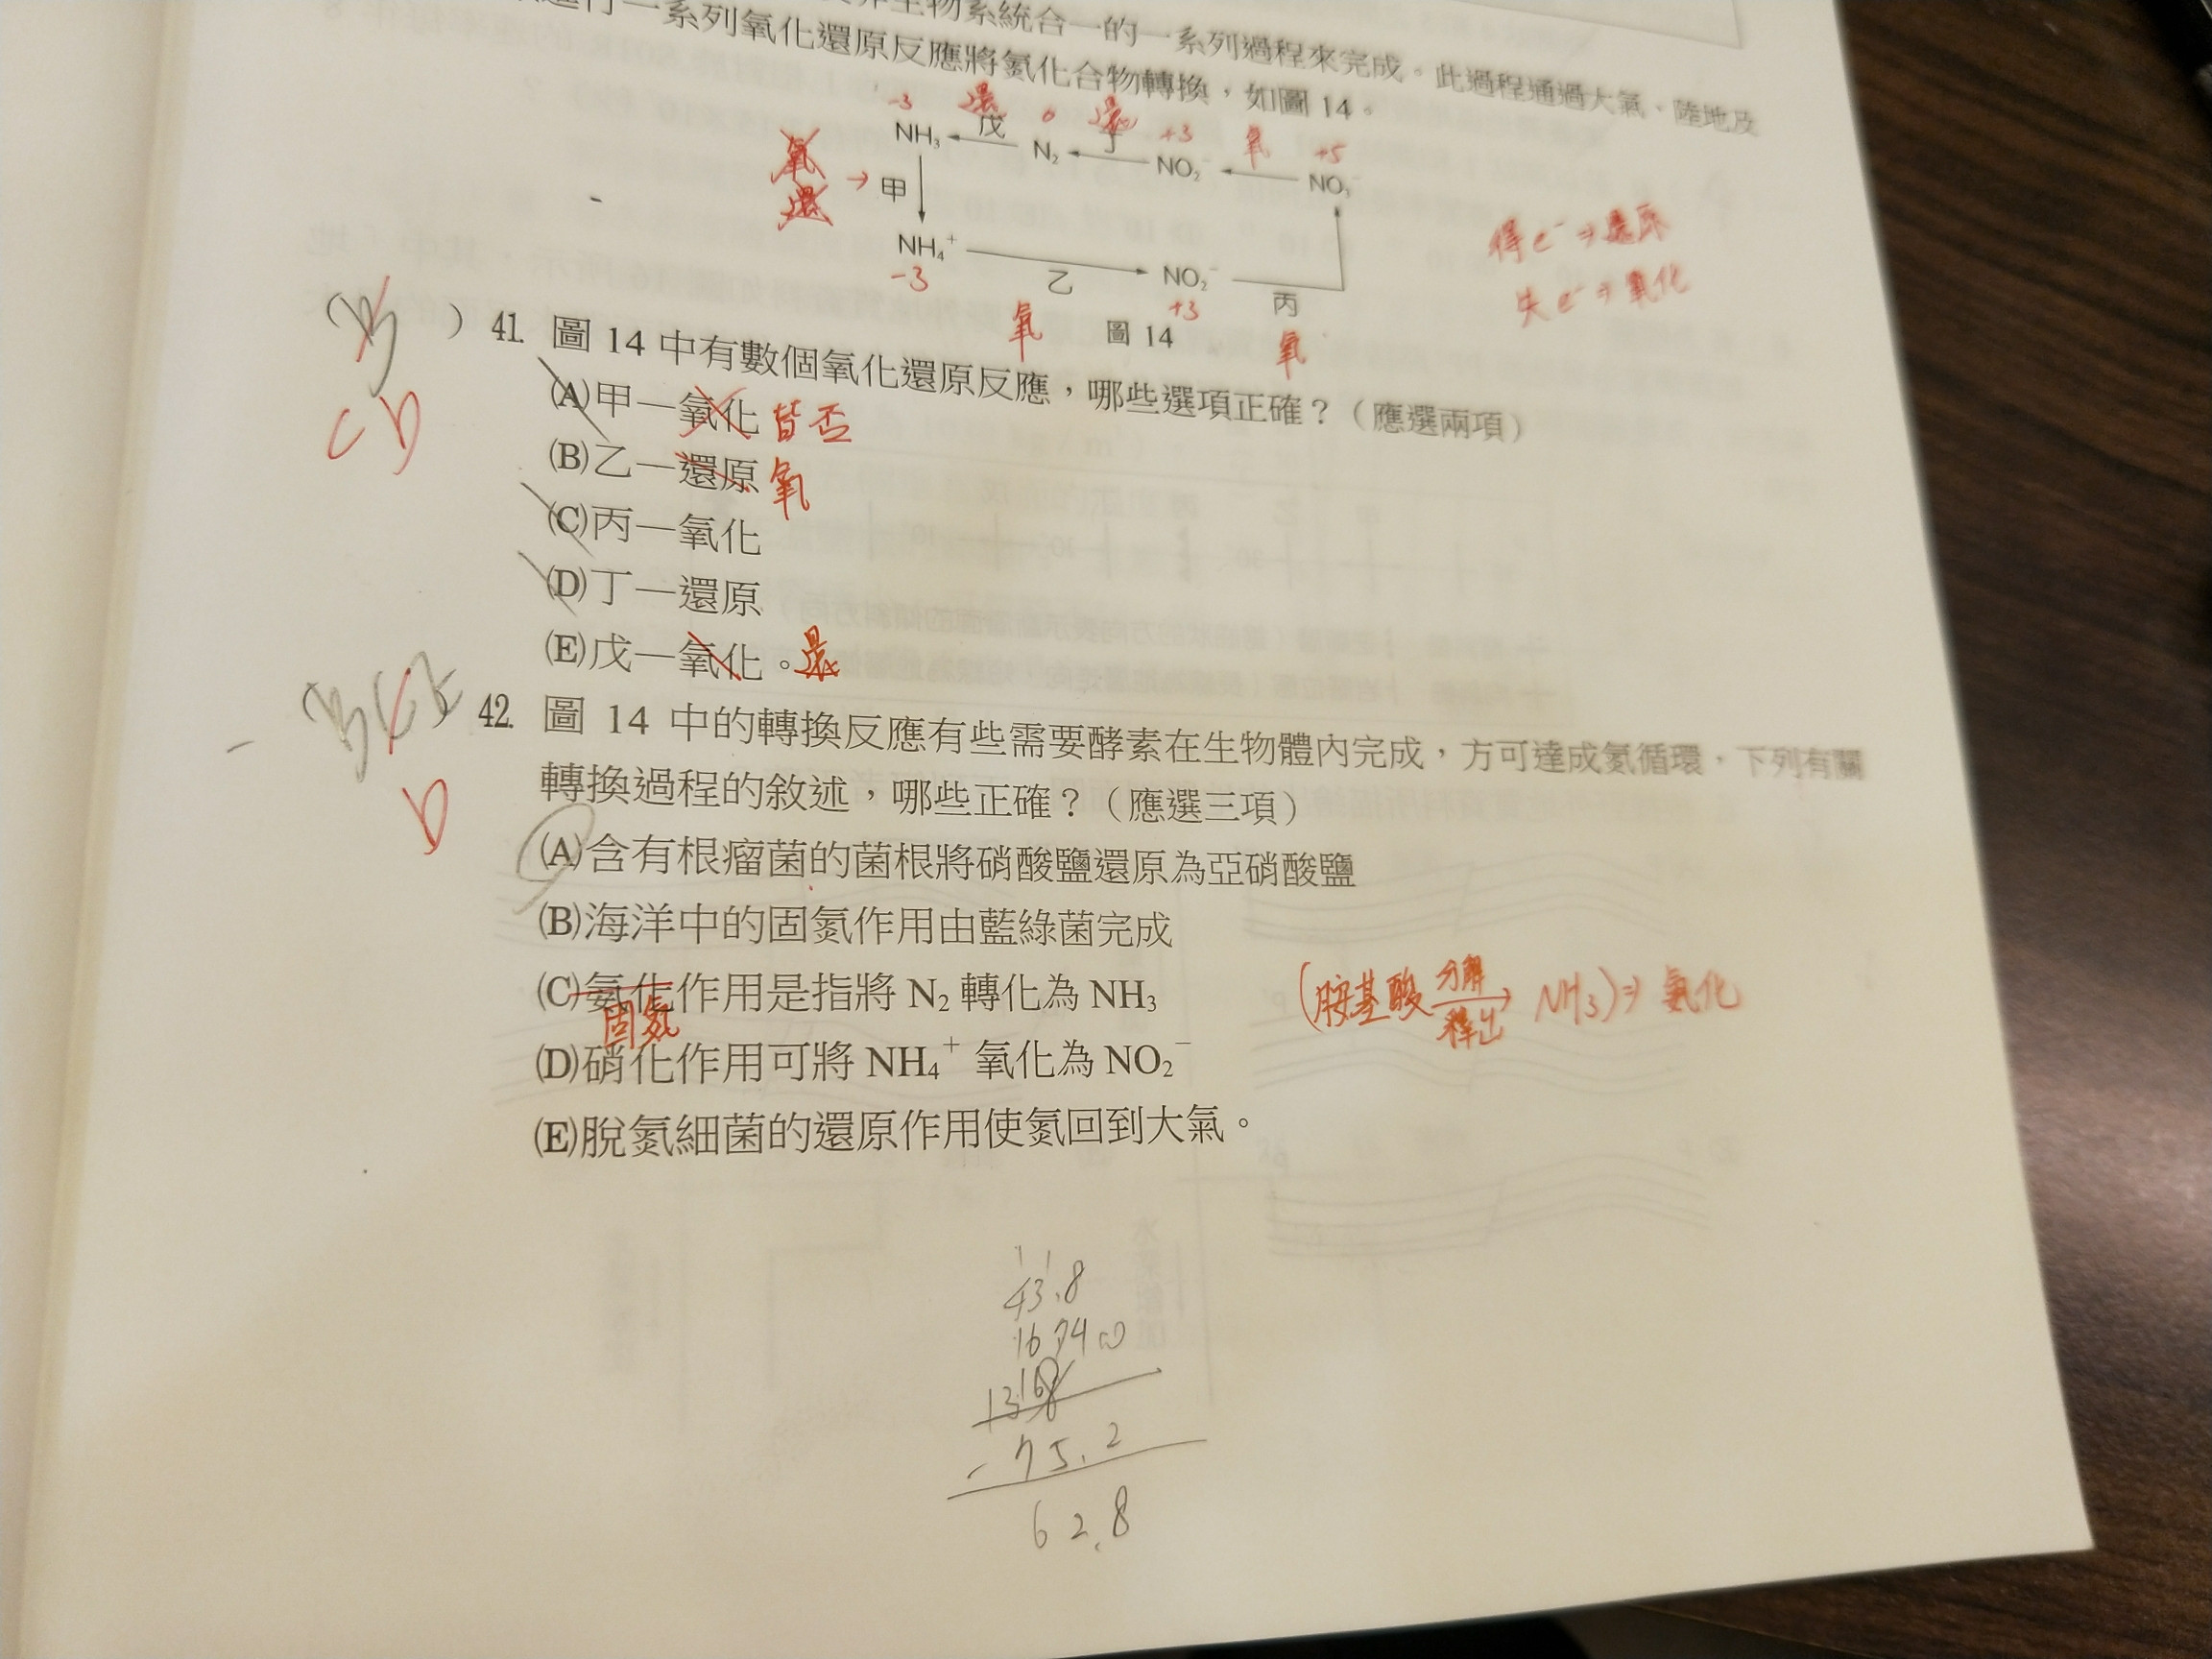 生物系統合一的一系列過程來完成。此過程通過大氣、陸地及
一系列氧化還原反應將氮化合物轉換，如圖 14。
-3 還 0 還 +3 氧 +5
NH₃ 戊 N₂ 丁 NO₂⁻ NO₃⁻
氧
還 → 甲
得 e⁻ ⇒ 還原
失 e⁻ ⇒ 氧化
NH₄⁺ 乙 NO₂⁻ 丙
-3 氧 +3 氧
圖 14
B ) 41. 圖 14 中有數個氧化還原反應，哪些選項正確？（應選兩項）
CD
(A)甲—氧化 皆否
(B)乙—還原 氧
(C)丙—氧化
(D)丁—還原
(E)戊—氧化。還
BCE ) 42. 圖 14 中的轉換反應有些需要酵素在生物體內完成，方可達成氮循環，下列有關
D
轉換過程的敘述，哪些正確？（應選三項）
(A)含有根瘤菌的菌根將硝酸鹽還原為亞硝酸鹽
(B)海洋中的固氮作用由藍綠菌完成
(C)氨化作用是指將 N₂ 轉化為 NH₃
固氮
(胺基酸 分解 釋出 → NH₃) ⇒ 氨化
(D)硝化作用可將 NH₄⁺ 氧化為 NO₂⁻
(E)脫氮細菌的還原作用使氮回到大氣。
1 1
43.8
- 75.2
62.8